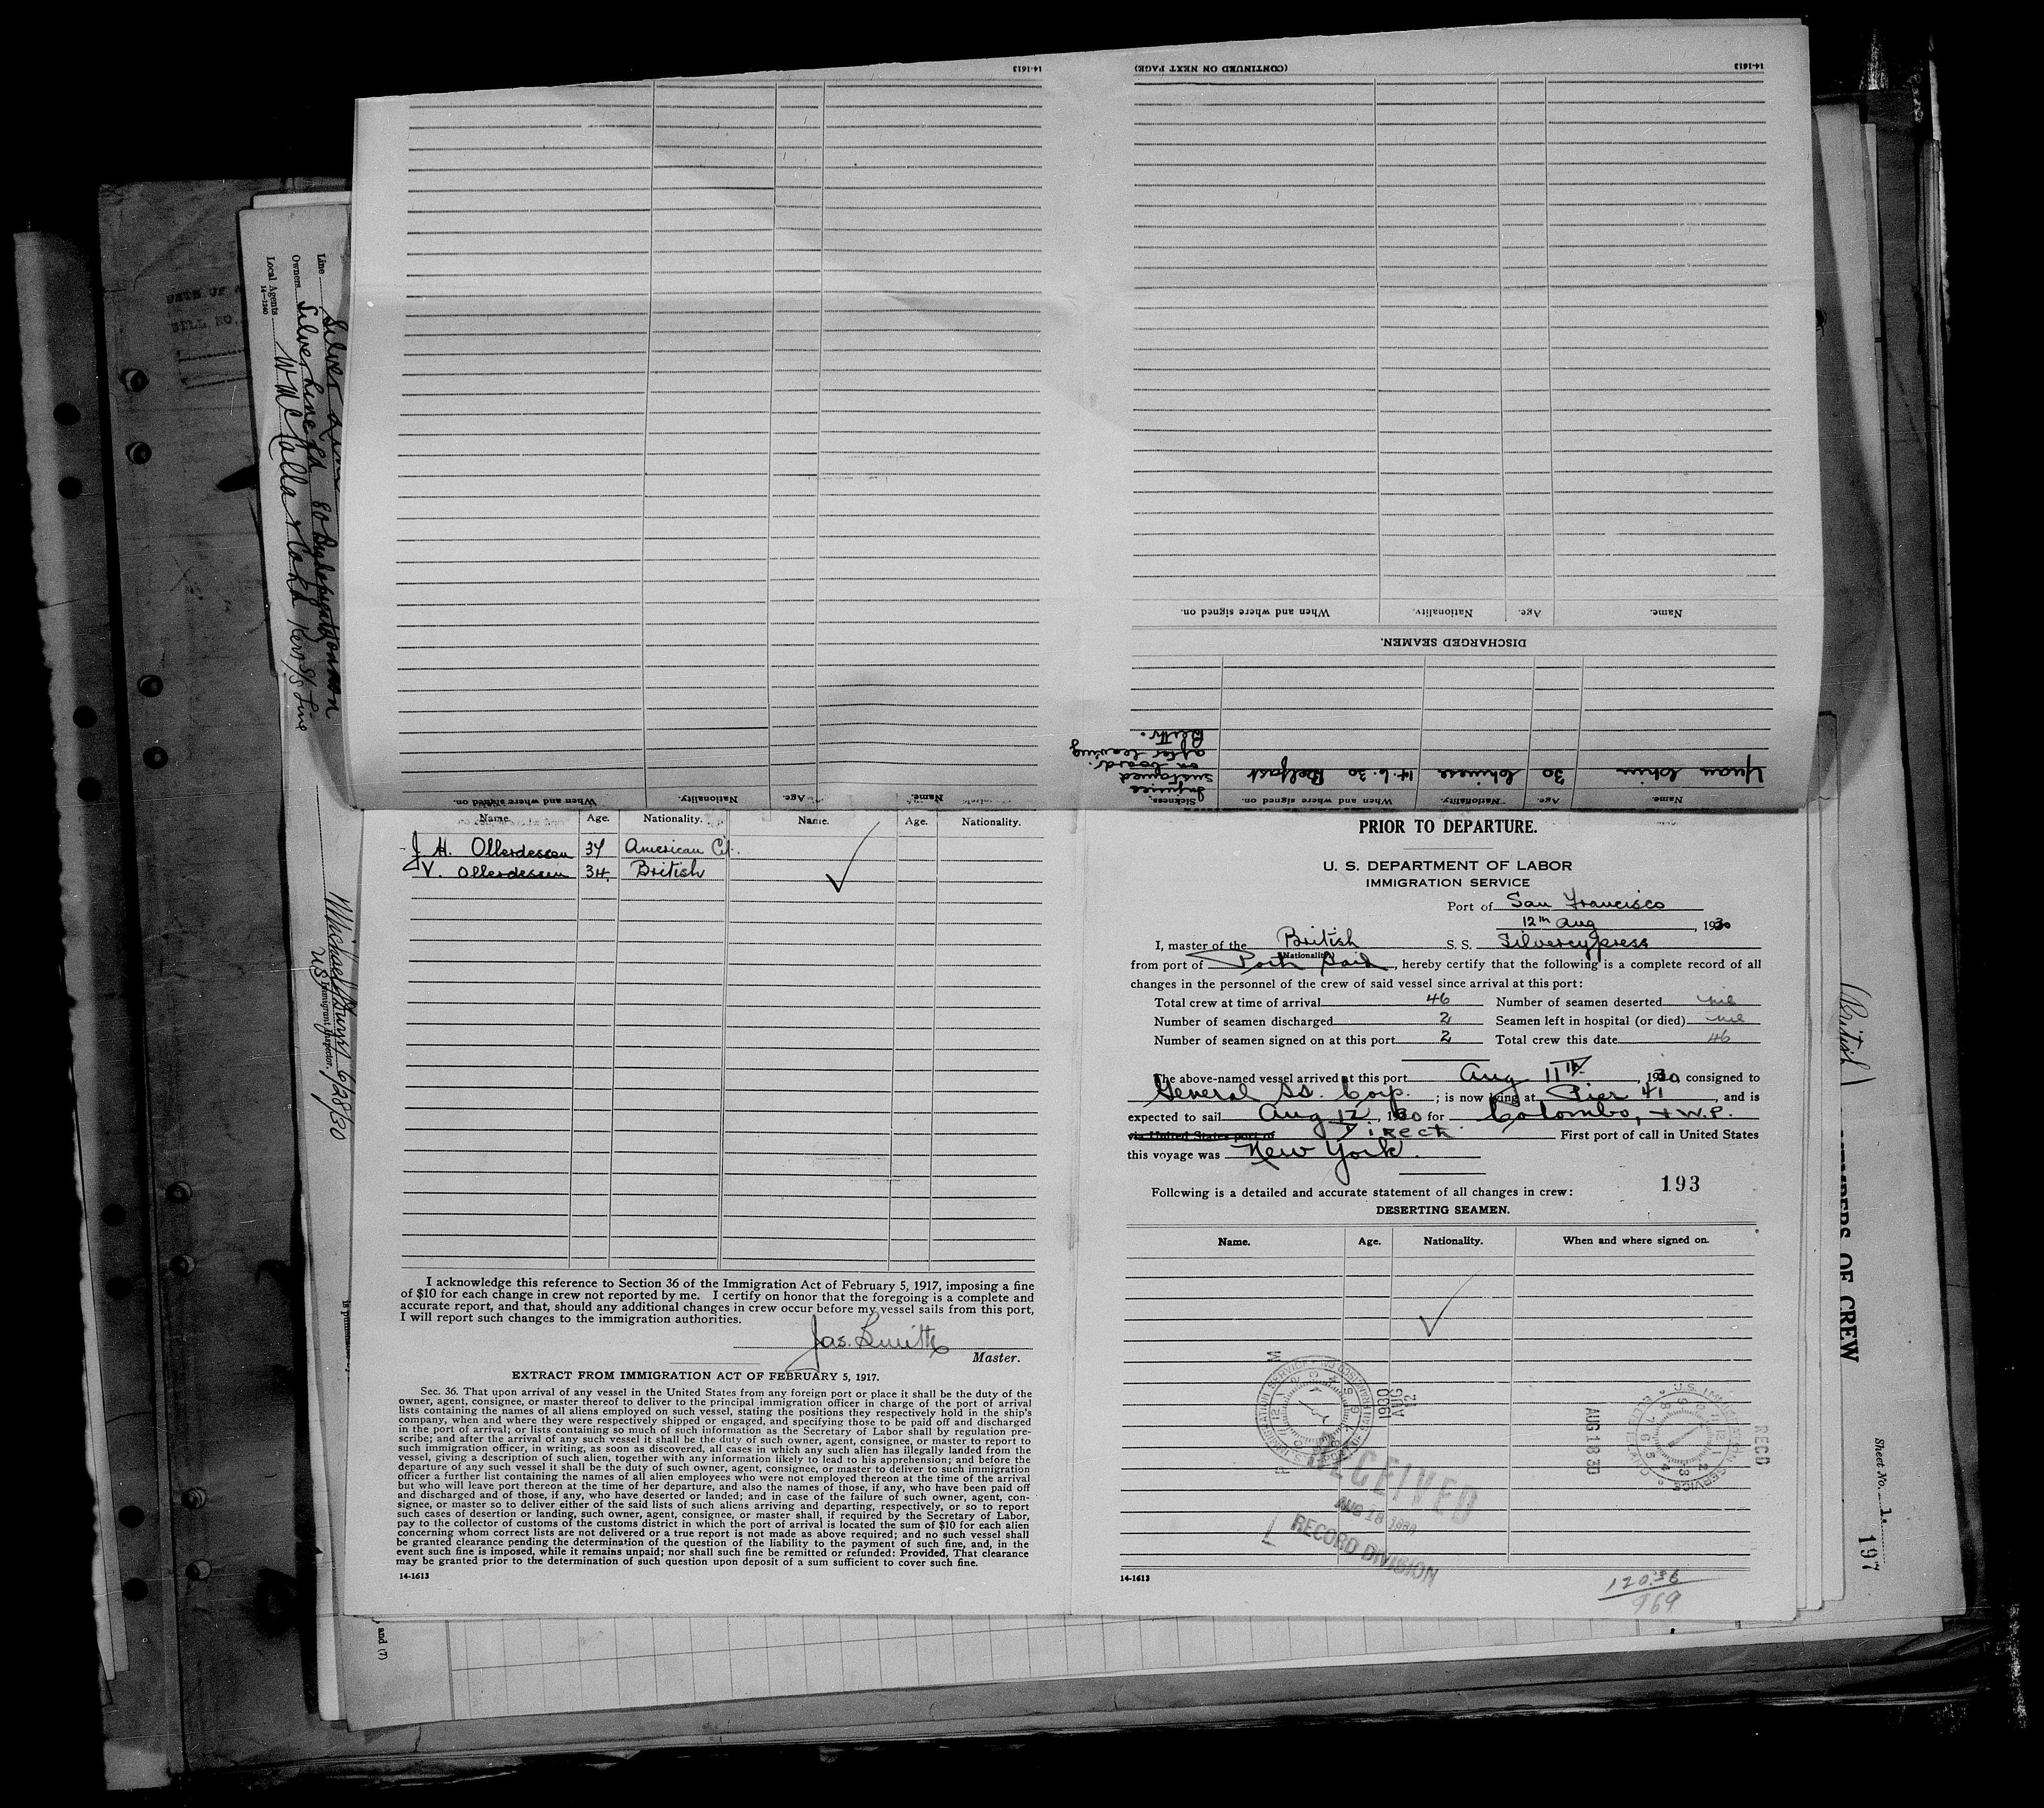 14-1613
(CONTINUED ON NEXT PAGE)
14-1613
Name.
Age.
Nationality.
When and where signed on.
DISCHARGED SEAMEN.
Name.
Age.
Nationality.
When and where signed on.
Sickness.
Yuan Chin
30
Chinese
14.6.30 Belfast
Injuries
sustained
on board
after leaving
Name.
Age.
Nationality.
When and where signed on.
Line
Silver Line
Owners
Silver Line Ltd
Local Agents
14-1240
Kerr S/S Line
6/28/30
Immigrant Inspector.
Name.
Age.
Nationality.
Name.
Age.
Nationality.
J. H. Ollerdessen 37 American Cit.
V. Ollerdessen 34. British
I acknowledge this reference to Section 36 of the Immigration Act of February 5, 1917, imposing a fine
of $10 for each change in crew not reported by me. I certify on honor that the foregoing is a complete and
accurate report, and that, should any additional changes in crew occur before my vessel sails from this port,
I will report such changes to the immigration authorities.
Jas. Smith
Master.
EXTRACT FROM IMMIGRATION ACT OF FEBRUARY 5, 1917.
Sec. 36. That upon arrival of any vessel in the United States from any foreign port or place it shall be the duty of the
owner, agent, consignee, or master thereof to deliver to the principal immigration officer in charge of the port of arrival
lists containing the names of all aliens employed on such vessel, stating the positions they respectively hold in the ship's
company, when and where they were respectively shipped or engaged, and specifying those to be paid off and discharged
in the port of arrival; or lists containing so much of such information as the Secretary of Labor shall by regulation pre-
scribe; and after the arrival of any such vessel it shall be the duty of such owner, agent, consignee, or master to report to
such immigration officer, in writing, as soon as discovered, all cases in which any such alien has illegally landed from the
vessel, giving a description of such alien, together with any information likely to lead to his apprehension; and before the
departure of any such vessel it shall be the duty of such owner, agent, consignee, or master to deliver to such immigration
officer a further list containing the names of all alien employees who were not employed thereon at the time of the arrival
but who will leave port thereon at the time of her departure, and also the names of those, if any, who have been paid off
and discharged and of those, if any, who have deserted or landed; and in case of the failure of such owner, agent, con-
signee, or master so to deliver either of the said lists of such aliens arriving and departing, respectively, or so to report
such cases of desertion or landing, such owner, agent, consignee, or master shall, if required by the Secretary of Labor,
pay to the collector of customs of the customs district in which the port of arrival is located the sum of $10 for each alien
concerning whom correct lists are not delivered or a true report is not made as above required; and no such vessel shall
be granted clearance pending the determination of the question of the liability to the payment of such fine, and, in the
event such fine is imposed, while it remains unpaid; nor shall such fine be remitted or refunded: Provided, That clearance
may be granted prior to the determination of such question upon deposit of a sum sufficient to cover such fine.
14-1613
and (7)
PRIOR TO DEPARTURE.
U. S. DEPARTMENT OF LABOR
IMMIGRATION SERVICE
Port of San Francisco
12th Aug, 1930
I, master of the British S. S. Silvercypress
(Nationality)
from port of Port Said, hereby certify that the following is a complete record of all
changes in the personnel of the crew of said vessel since arrival at this port:
Total crew at time of arrival 46 Number of seamen deserted nil
Number of seamen discharged 2 Seamen left in hospital (or died) nil
Number of seamen signed on at this port 2 Total crew this date 46
The above-named vessel arrived at this port Aug 11th, 1930, consigned to
General SS. Corp. ; is now lying at Pier 41, and is
expected to sail Aug 12, 1930 for Colombo, + W.P.
via United States port of Direct First port of call in United States
this voyage was New York.
193
Following is a detailed and accurate statement of all changes in crew:
DESERTING SEAMEN.
Name. Age. Nationality. When and where signed on.
AUG
12
1930
RECEIVED
AUG 18 1930
RECORD DIVISION
AUG 18 30
U.S. IMMIGRATION SERVICE
REC'D
14-1613
12036
969
(British)
MEMBERS OF CREW
Sheet No. 1.
197